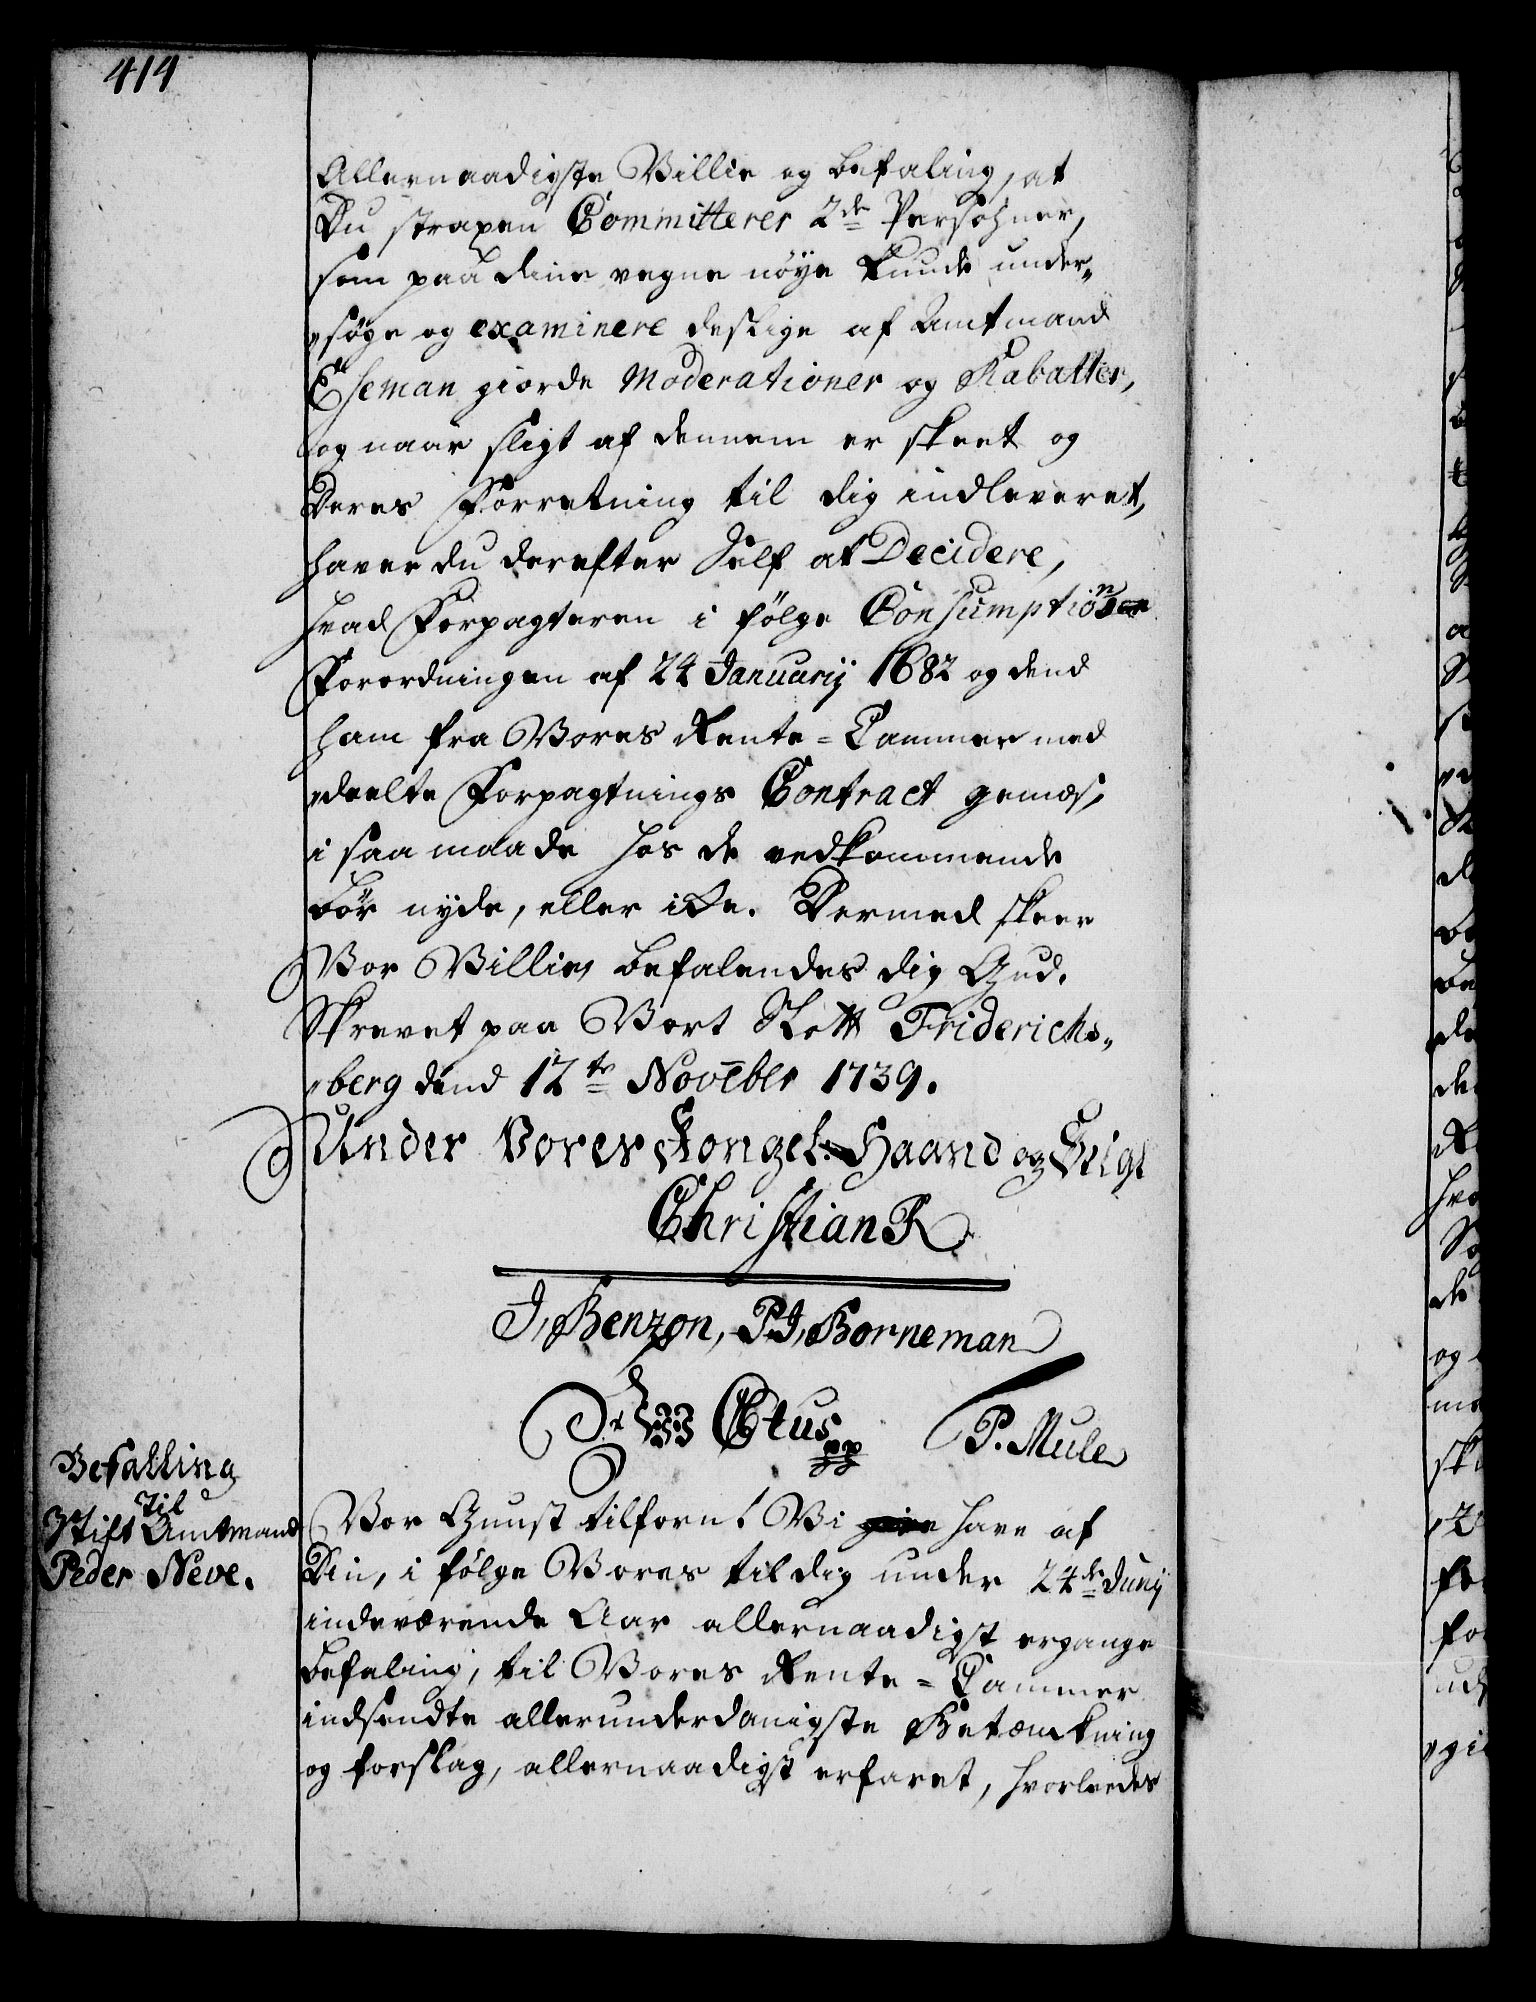 414
Allernaadigste Villie og befaling, at
Du straxen Committerer 2de Persohner,
som paa dine vegne nöye kunde under„
„söge og examinere deslige af Amtmand
Eseman giorde Moderationer og Rabatter,
og naar sligt af dennem er skeet og
Deres Forretning til dig indleveret,
haver du derefter Self at Decidere,
hvad Forpagteren i fölge Consumptions
Forordningen af 24 Januarij 1682 og dend
ham fra Vores Rente-Cammer med
„deelte Forpagtnings Contract gemæs,
i saa maade hos de vedkommende
bör nyde, eller ikke. Dermed skeer
Vor Villie, befalendes dig Gud.
Skrevet paa Vort Slott Friderichs„
„berg dend 12te Novēber 1739.
Under Vores Kongel. Haand og Seigl
Christian R
J. Benzon, P. J. Borneman
Otus
P. Mule
Befalling
til
Stift Amtmand
Peder Neve.
Vor Gunst tilforn! Vi have af
Din, i fölge Vores til dig under 24de Junij
indeværende Aar allernaadigst ergangne
befaling, til Vores Rente-Cammer
indsendte allerunderdanigste Betænkning
og forslag, allernaadigst erfaret, hvorledes